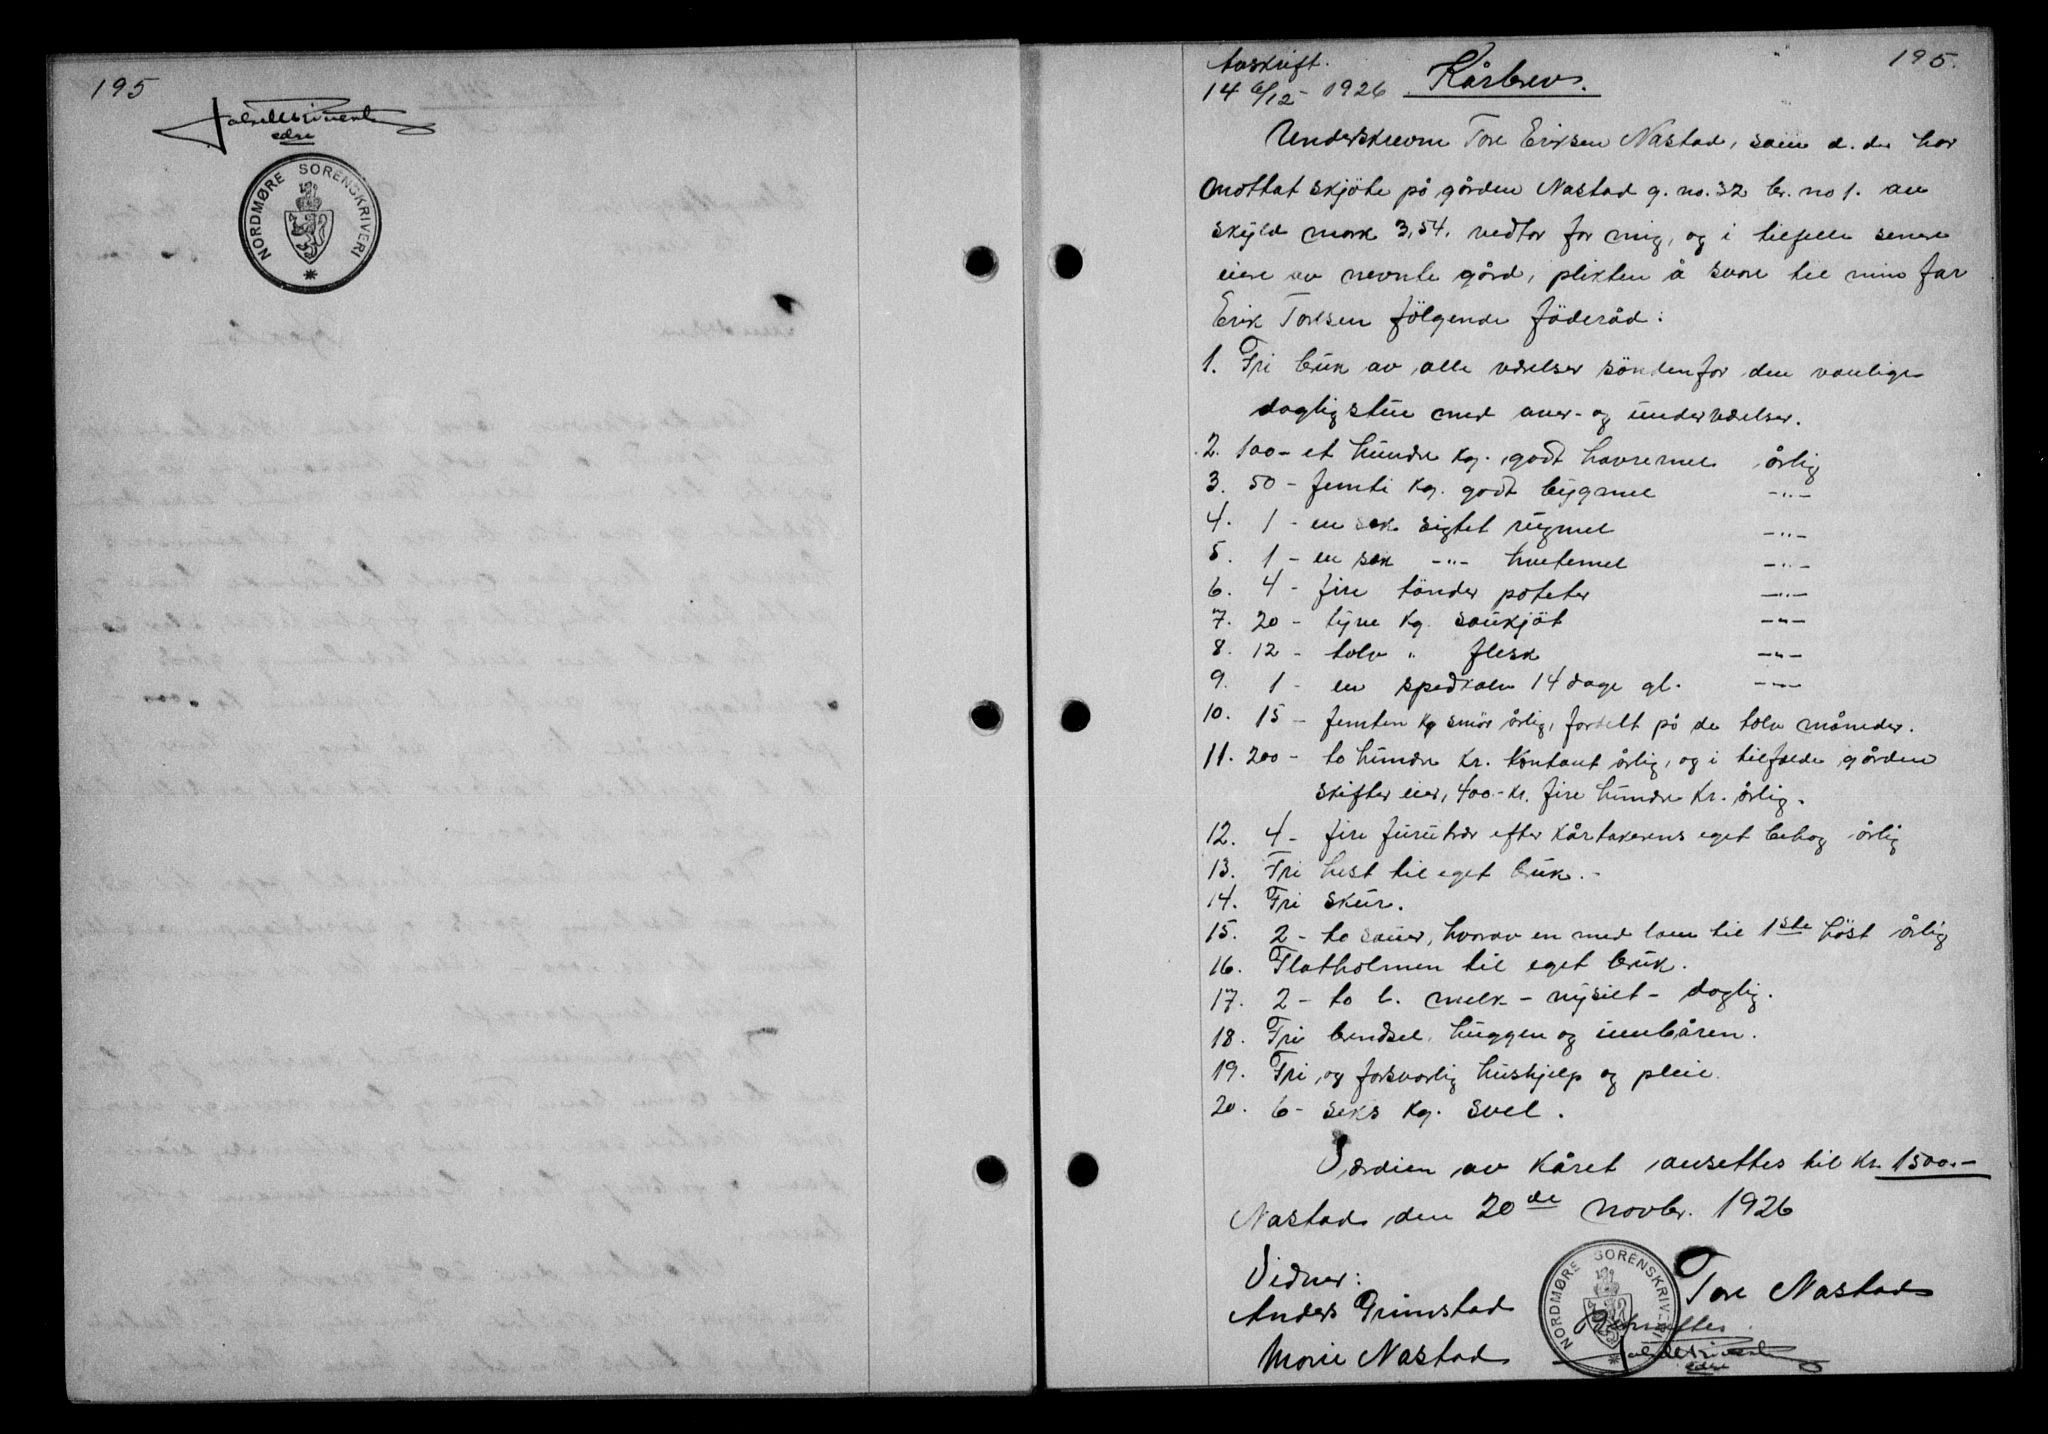 195
edse
NORDMØRE SORENSKRIVERI
195.
Avskrift.
14 6/12 - 1926 Kårbrev.
Underskrevne Tore Eriksen Nastad, som d. d. har
mottat skjöte på gården Nastad g. no. 32 br. no 1. av
skyld mark 3,54. vedtar for mig, og i tilfelle senere
eiere av nevnte gård, plikten å svare til min far
Erik Toresen fölgende föderåd:
1. Fri bruk av alle værelser söndenfor den vanlige
dagligstue med over- og underværelser.
2. 100 - et hundre kg. godt havremel årlig
3. 50 - femti kg. godt bygmel -"-
4. 1 - en sek sigtet rugmel -"-
5. 1 - en sek -"- hvetemel -"-
6. 4 - fire tönder poteter -"-
7. 20 - tyve kg. saukjöt -"-
8. 12 - tolv " flesk -"-
9. 1 - en spedkalv 14 dage gl. -"-
10. 15 - femten kg smör årlig, fordelt på de tolv måneder.
11. 200 - to hundre kr. kontant årlig, og i tilfælde gården
skifter eier, 400.- kr. fire hundre kr. årlig.
12. 4 - fire furutrær efter kårtakerens eget behog årlig
13. Fri hest til eget bruk. -
14. Fri skur.
15. 2 - to sauer, hvorav en med lam til 1ste höst årlig
16. Flatholmen til eget bruk.
17. 2 - to l. melk - nysilt - daglig.
18. Fri brendsel, huggen og innbåren.
19. Fri og forsvarlig hushjelp og pleie.
20. 6 - seks kg. svel.
Værdien av kåret ansettes til kr. 1500.-
Nastad den 20de novbr. 1926
Vidner: Tore Nastad
Anders Grimstad
NORDMØRE SORENSKRIVERI
Bekreftes
Marie Nastad
edse